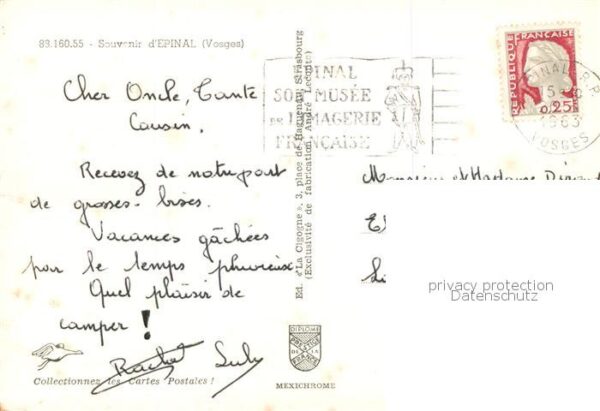 88.160.55 - Souvenir d'EPINAL (Vosges)
Cher Oncle, Tante
Cousin,
Recevez de notre part
de grosses bises.
Vacances gâchées
par le temps pluvieux
Quel plaisir de
camper !
Collectionnez les Cartes Postales !
Ed. "La Cigogne", 3, place de Haguenau, Strasbourg
(Exclusivité de fabrication André Leconte)
DIPLOME
PRESTIGE
DE LA
FRANCE
MEXICHROME
EPINAL
SON MUSÉE
DE L'IMAGERIE
FRANÇAISE
REPUBLIQUE FRANÇAISE
0,25
EPINAL R.P.
15
1963
VOSGES
Monsieur et Madame
privacy protection
Datenschutz